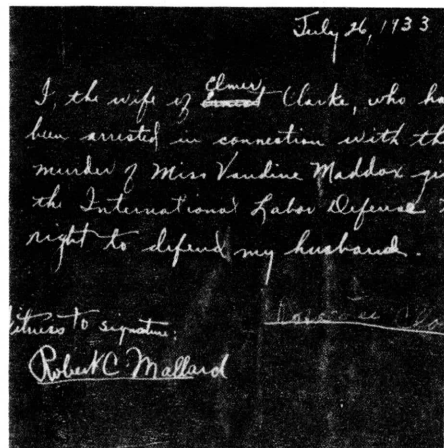 July 26, 1933
I, the wife of Elmer Clarke, who ha
been arrested in connection with th
murder of Miss Vaudine Maddox gi
the International Labor Defense
right to defend my husband.
itness to signature:
Robert C Mallard